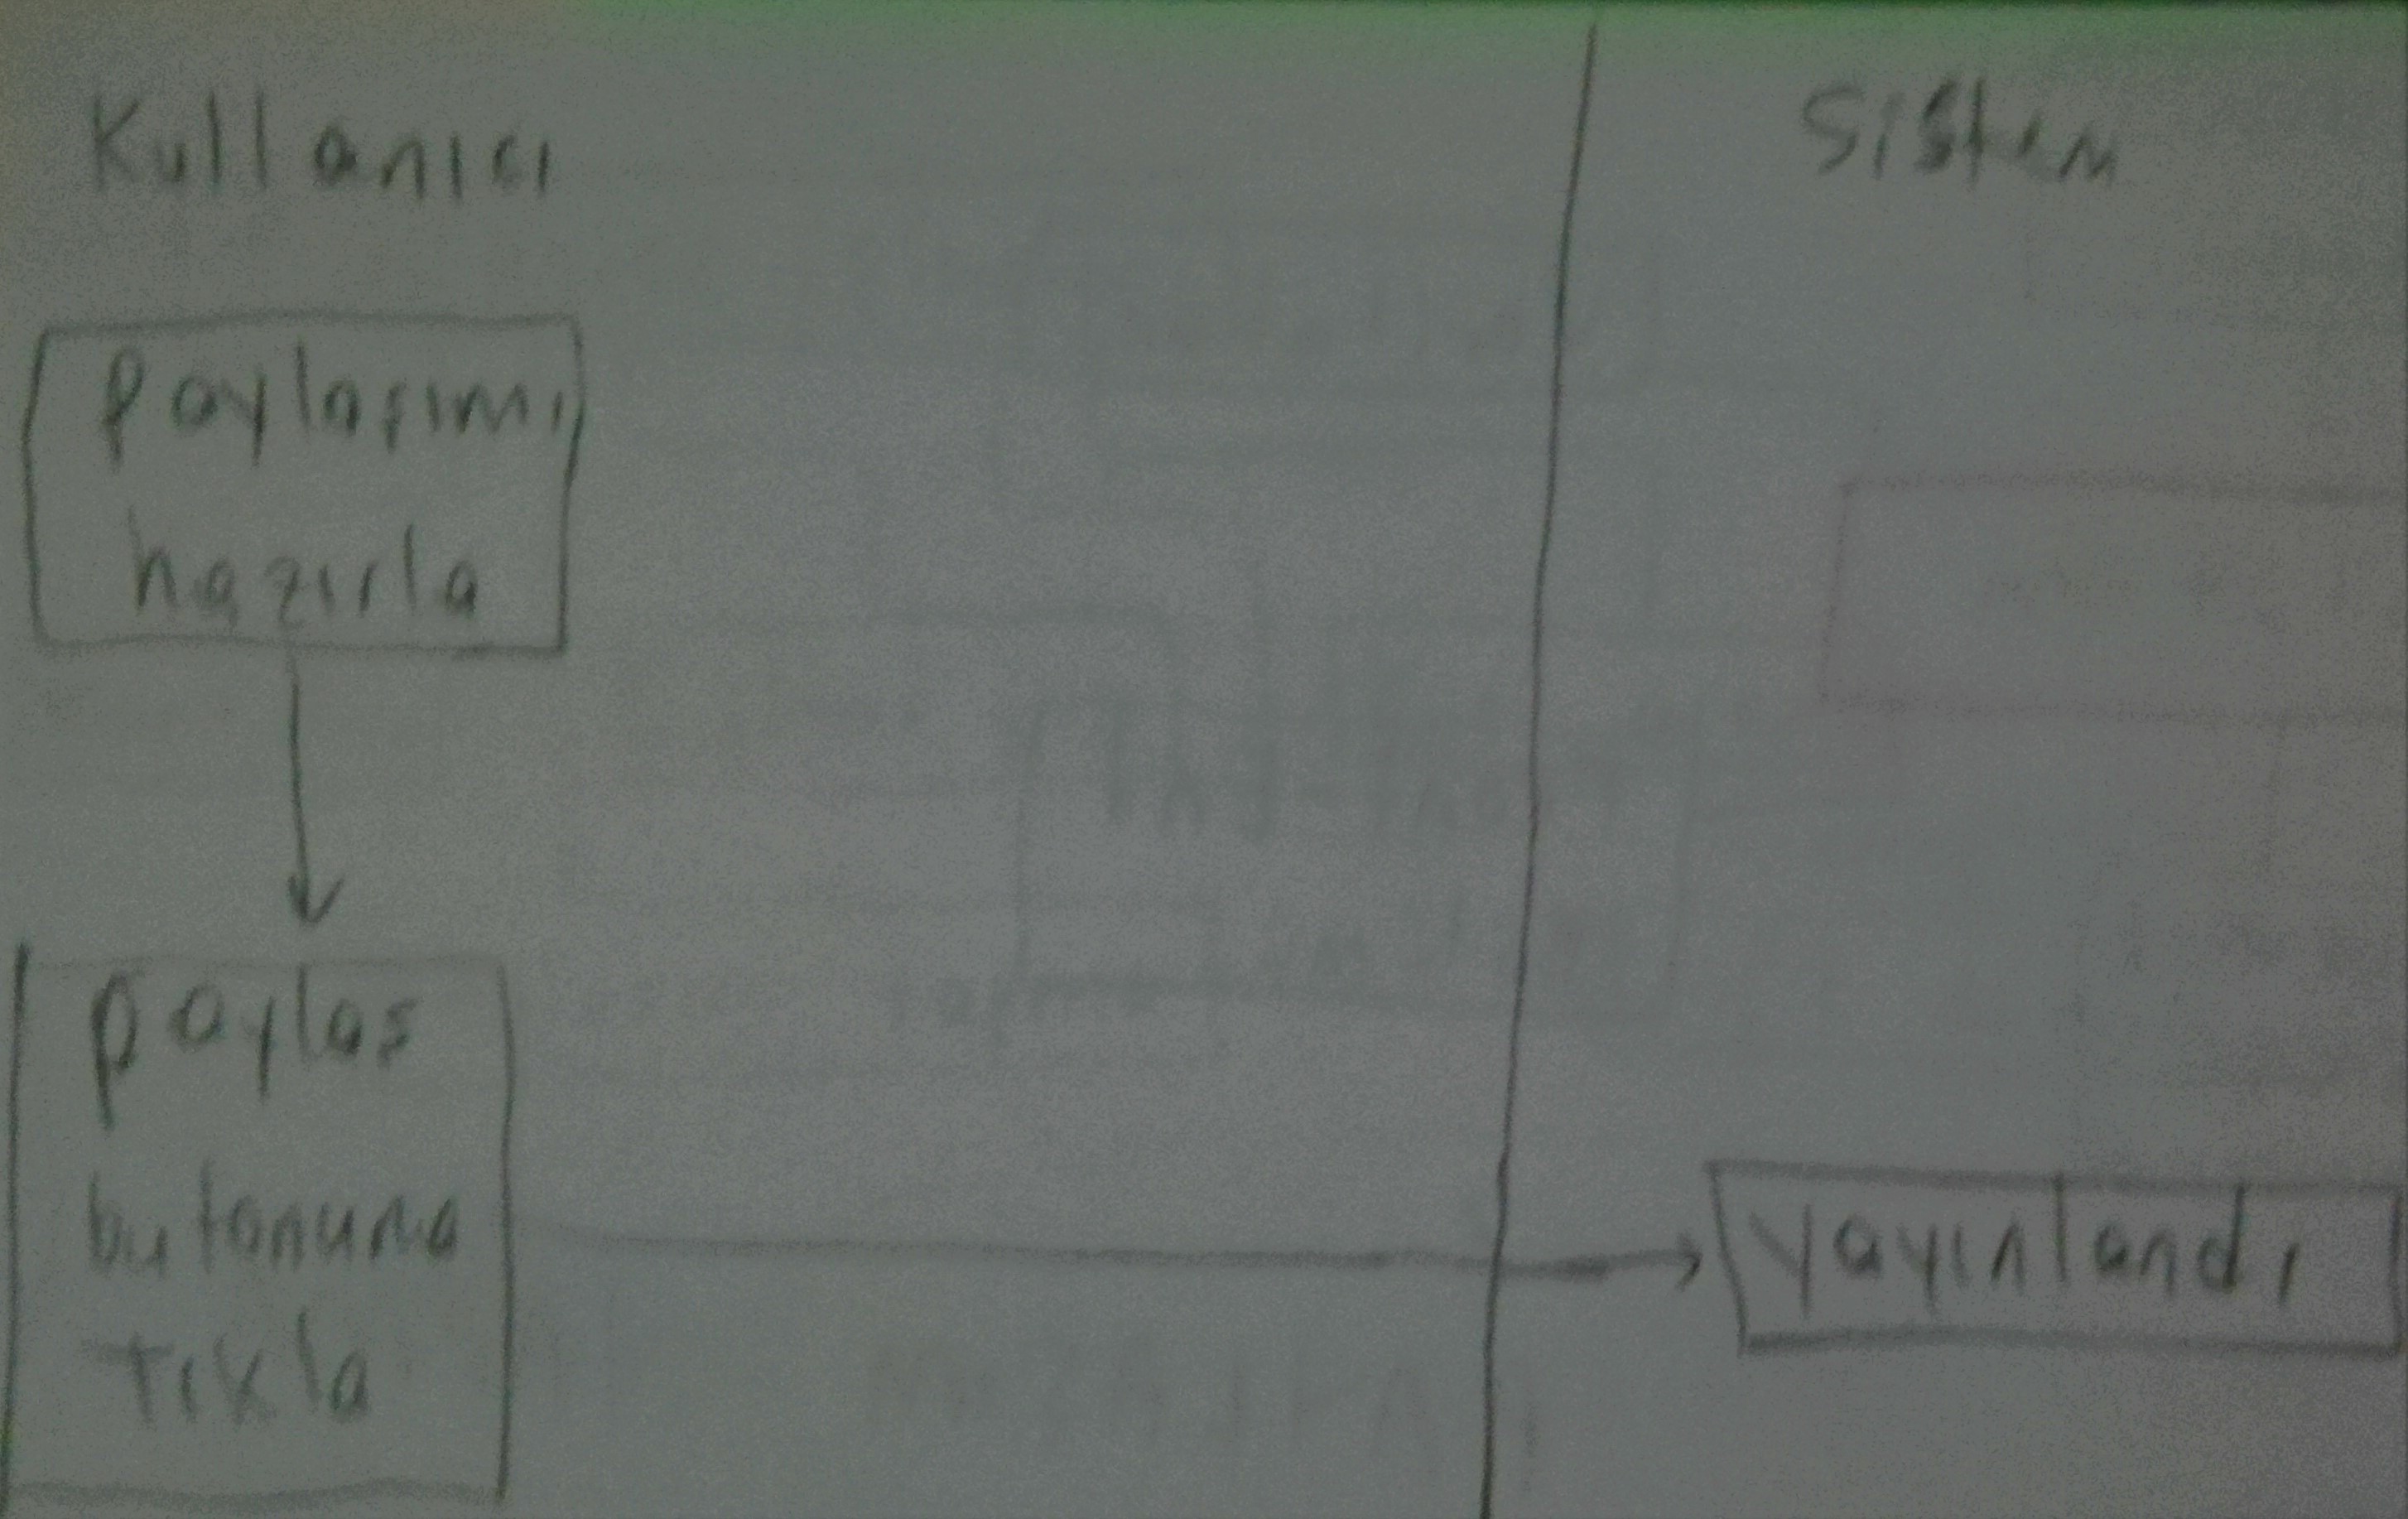 Kullanıcı
Sistem
Paylaşımı
hazırla
paylas
butonuna
Tıkla
Yayınlandı